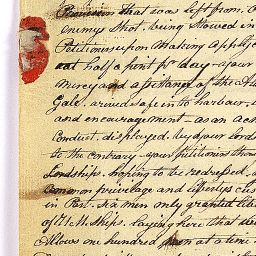 Provision that was left from. O
enemy Shot, being Stowed in
Petitioners upon Making Applic
eat half a pint pr day - your
mercy and a pittance of the A
Gale. arived safe into harbour,
and encouragement - as an ac
Conduct. displayed, by your Lord
to the contrary - your petitioners thou
Lordships. hoping to be redressed,
Common priveleage and libertys cus
in Port. Seamen only granted libe
of H. M. Ships. laying here that the
Allows one hundred men at a time